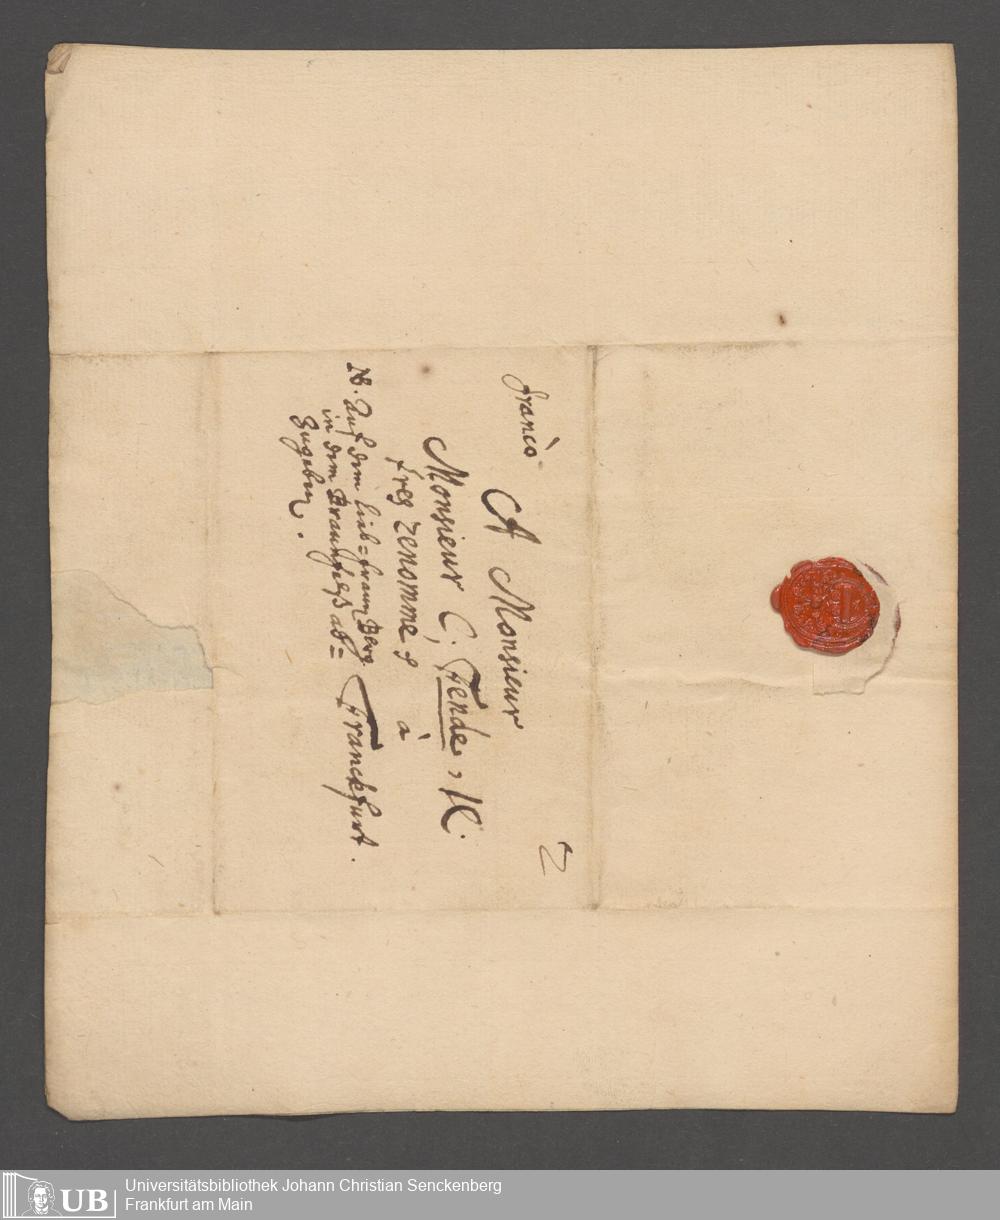 franco
A Monsieur
Monsieur C, Fende, K.
tres renomme
à
Franckfurt.
NB. Auf dem lieb=fraun Berg
in dem Braunfelß ab=
zugeben.
2
UB
Universitätsbibliothek Johann Christian Senckenberg
Frankfurt am Main